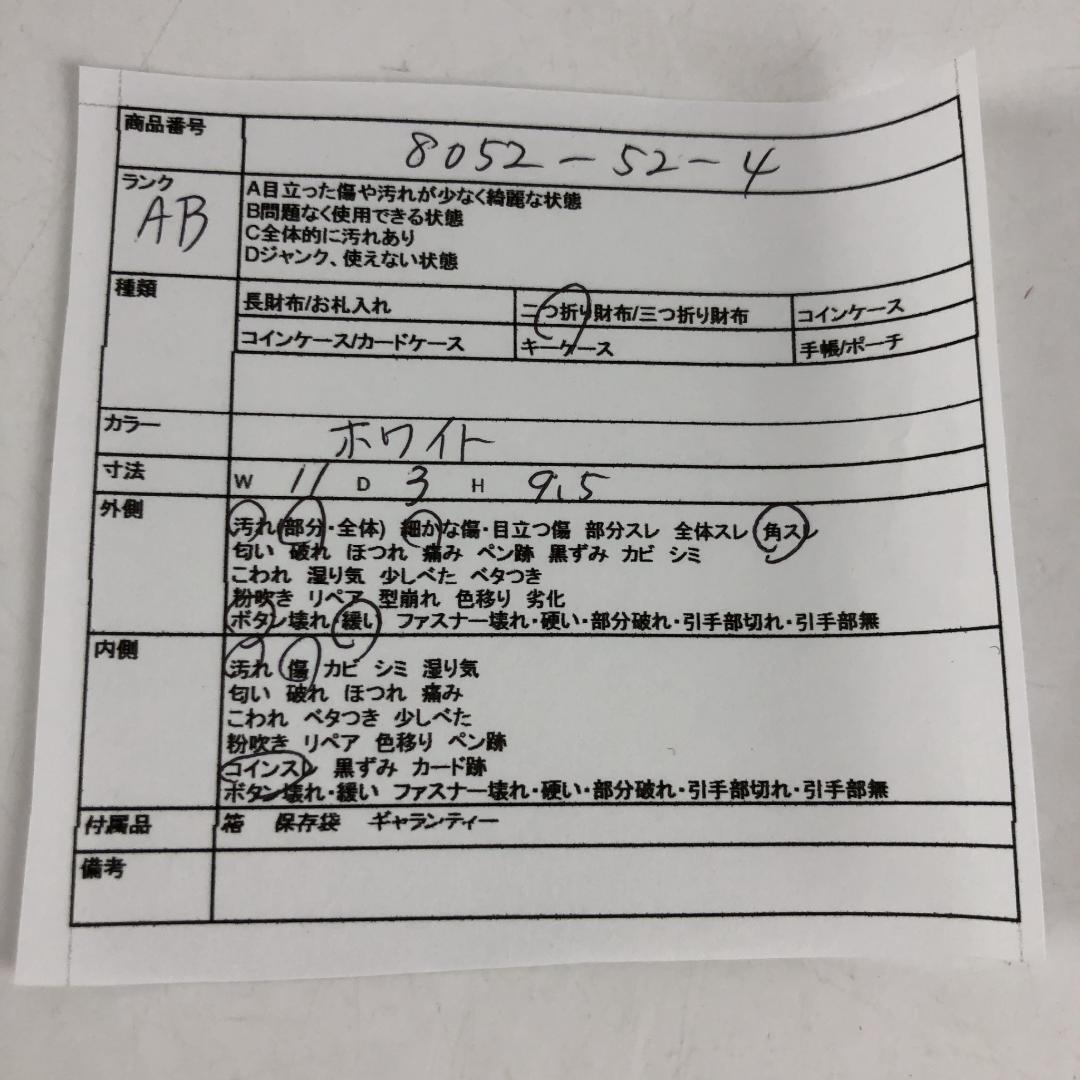 商品番号 8052-52-4
ランク AB
A目立った傷や汚れが少なく綺麗な状態
B問題なく使用できる状態
C全体的に汚れあり
Dジャンク、使えない状態
種類 長財布/お札入れ 二つ折り財布/三つ折り財布 コインケース
コインケース/カードケース キーケース 手帳/ポーチ
カラー ホワイト
寸法 W 11 D 3 H 9.5
外側 汚れ(部分・全体) 細かな傷・目立つ傷 部分スレ 全体スレ 角スレ
匂い 破れ ほつれ 痛み ペン跡 黒ずみ カビ シミ
こわれ 湿り気 少しべた ベタつき
粉吹き リペア 型崩れ 色移り 劣化
ボタン壊れ・緩い ファスナー壊れ・硬い・部分破れ・引手部切れ・引手部無
内側 汚れ 傷 カビ シミ 湿り気
匂い 破れ ほつれ 痛み
こわれ ベタつき 少しべた
粉吹き リペア 色移り ペン跡
コインスレ 黒ずみ カード跡
ボタン壊れ・緩い ファスナー壊れ・硬い・部分破れ・引手部切れ・引手部無
付属品 箱 保存袋 ギャランティー
備考